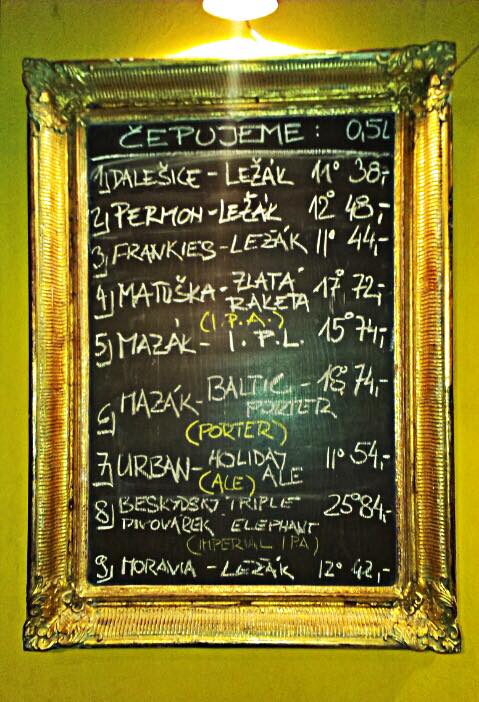 ČEPUJEME: 0,5L
1) DALEŠICE - LEŽÁK 11° 38,-
2) PERMON - LEŽÁK 12° 48,-
3) FRANKIES - LEŽÁK 11° 44,-
4) MATUŠKA - ZLATÁ 17° 72,-
RAKETA
(I.P.A.)
5) MAZÁK - I.P.L. 15° 74,-
6) MAZÁK - BALTIC - 18° 74,-
PORTER
(PORTER)
7) URBAN - HOLIDAY 11° 54,-
(ALE) ALE
8) BESKYDSKÝ TRIPLE 25° 84,-
PIVOVÁREK ELEPHANT
(IMPERIAL IPA)
9) MORAVIA - LEŽÁK 12° 42,-